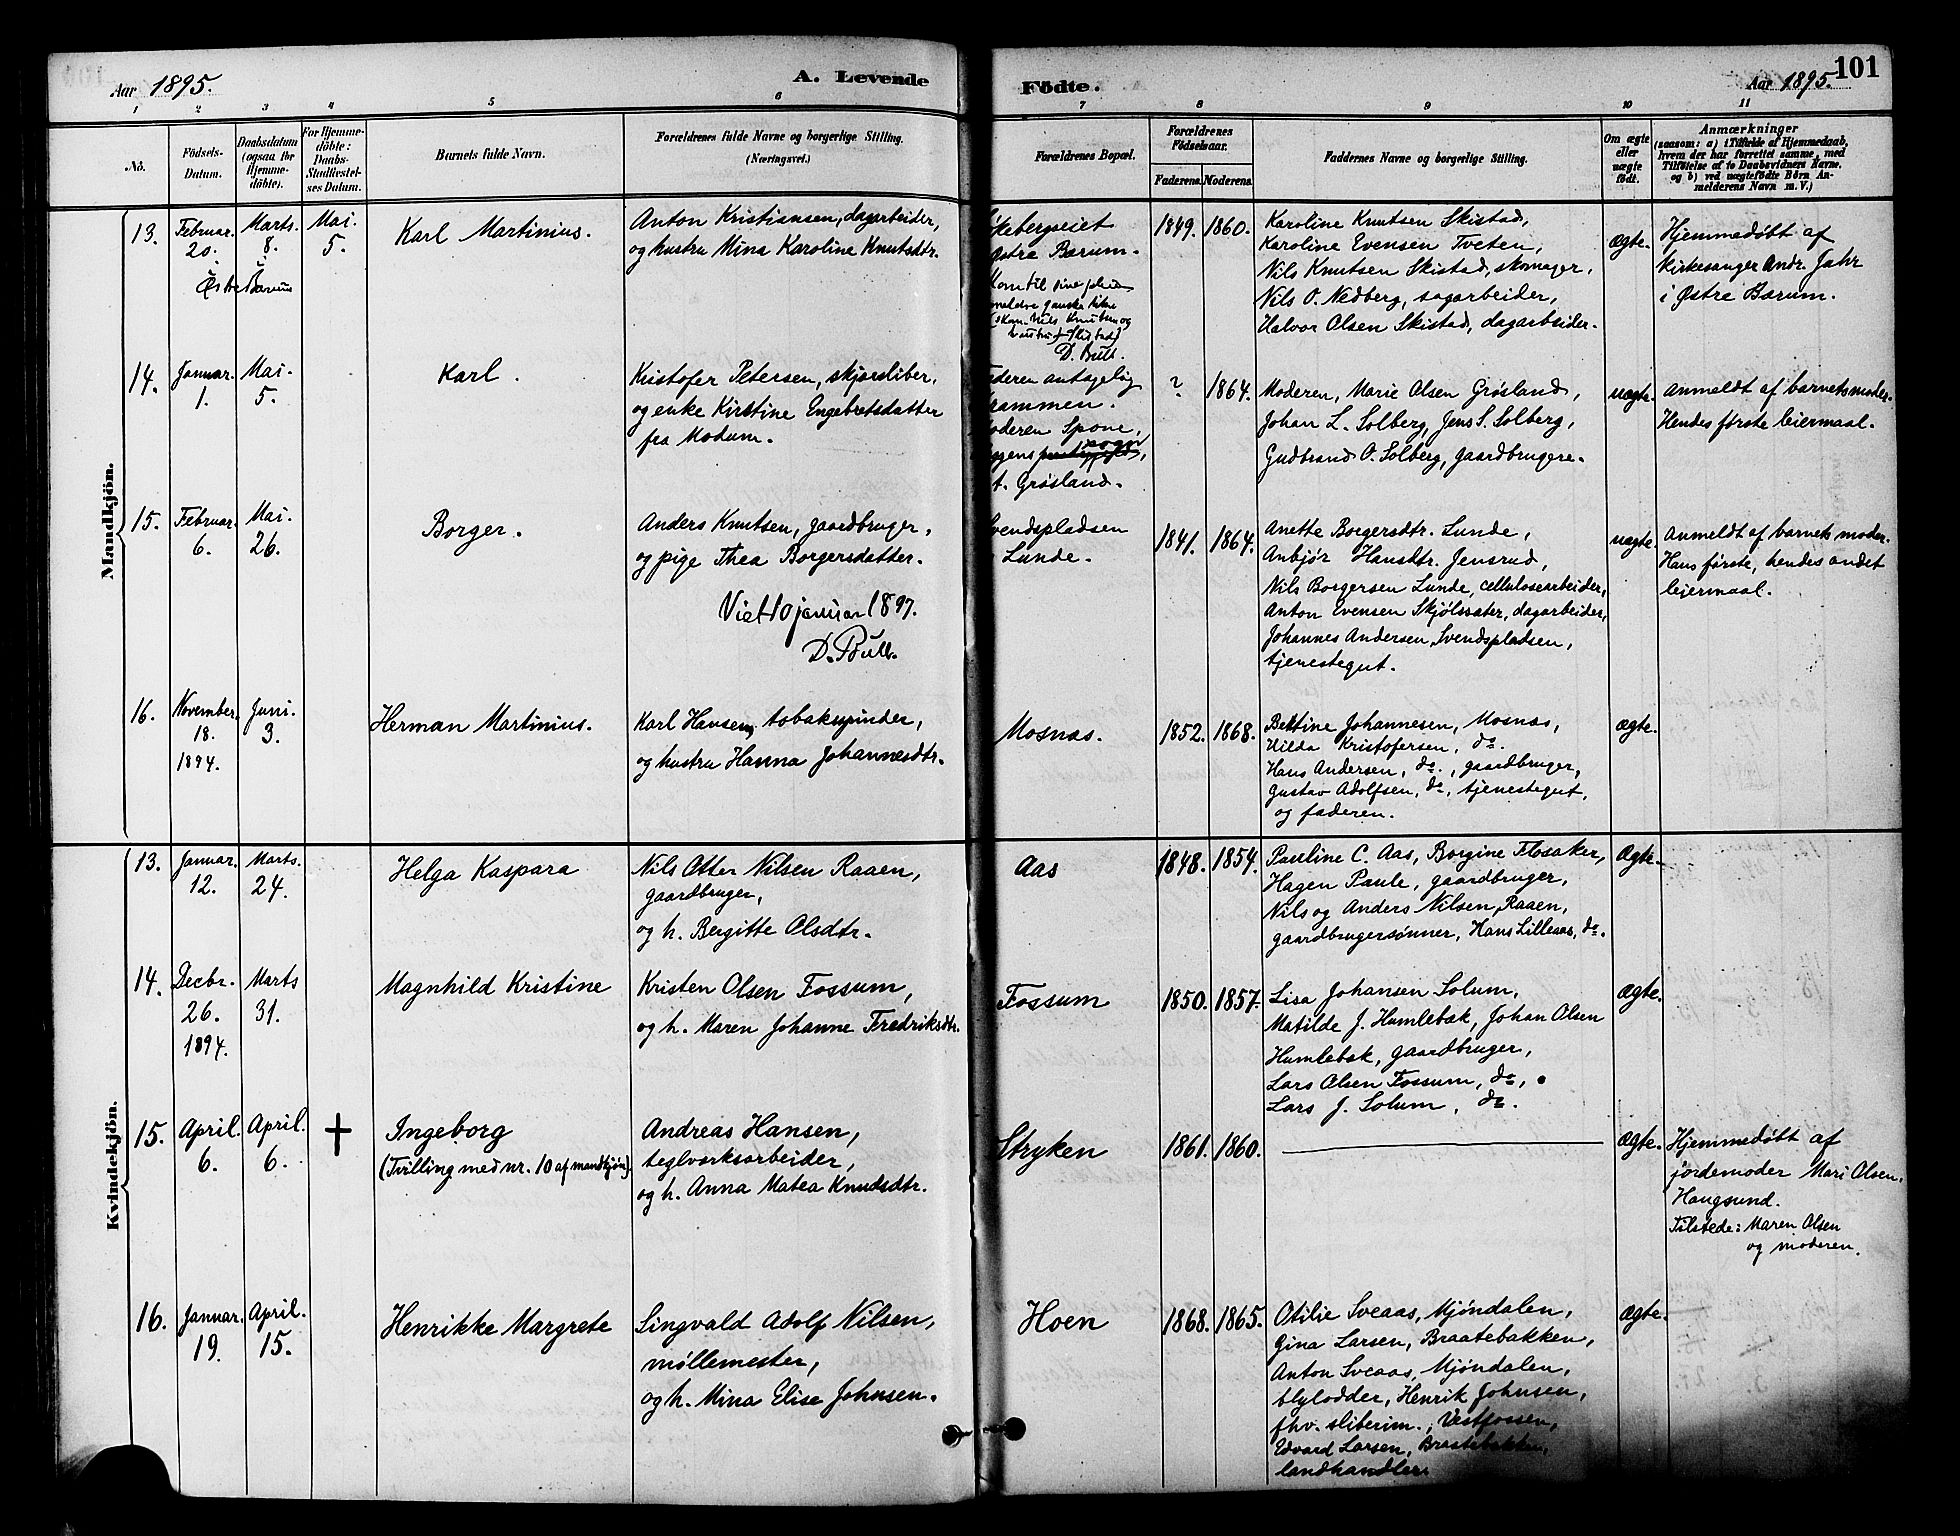 Aar 1895.
A. Levende
Födte.
Aar 1895.
101
1 2 3 4 5 6 7 8 9 10 11
No.
Födsels-
Datum.
Daabsdatum
(ogsaa for
Hjemme-
döbte).
For Hjemme-
döbte:
Daabs-
Stadfæstel-
ses Datum.
Barnets fulde Navn.
Forældrenes fulde Navne og borgerlige Stilling.
(Næringsvei.)
Forældrenes Bopæl.
Forældrenes
Födselsaar.
Faderens. Moderens.
Faddernes Navne og borgerlige Stilling.
Om ægte
eller
uægte
födt.
Anmærkninger
(saasom: a) i Tilfælde af Hjemmedaab,
hvem der har forrettet samme, med
Tilföielse af to Daabsvidners Navne,
og b) ved uægtefödte Börn An-
melderens Navn m. V.)
Mandkjön.
13.
Februar.
20.
Marts.
8.
Østre Bærum
Mai.
5.
Karl Martinius.
Anton Kristiansen, dagarbeider,
og hustru Mina Karoline Knutsdtr.
Østre Bærum.
Kom til sine pleie
forældre ganske liten
(skom. Nils Knutsen og
hustru Skistad)
D. Bull.
1849. 1860.
Karoline Knutsen Skistad,
Karoline Evensen Tveten,
Nils Knutsen Skistad, skomager,
Nils O. Nedberg, sagarbeider,
Halvor Olsen Skistad, dagarbeider.
Ægte.
Hjemmedøbt af
kirkesanger Andr. Jahr
i Østre Bærum.
14.
Januar.
1.
Mai.
5.
Karl.
Kristofer Petersen, skjærsliber,
og enke Kirstine Engebretsdatter
fra Modum.
Faderen antagelig
Drammen.
Moderen Spone,
Byggens sogn,
t. Grøsland.
? 1864.
Moderen, Marie Olsen Grøsland,
Johan L. Solberg, Jens S. Solberg,
Gudbrand O. Solberg, gaardbrugere.
uægte.
Anmeldt af barnets moder.
Hendes første leiermaal.
15.
Februar.
6.
Mai.
26.
Borger.
Anders Knutsen, gaardbruger,
og pige Thea Borgersdatter.
Viet 10 januar 1897.
D. Bull.
Svendspladsen
og Lunde.
1841. 1864.
Anette Borgersdtr. Lunde,
Anbjør Hansdtr. Jensrud,
Nils Borgersen Lunde, cellulosearbeider,
Anton Evensen Skjølssæter, dagarbeider,
Johannes Andersen Svendspladsen,
tjenestegut.
uægte.
Anmeldt af barnets moder.
Hans første, hendes andet
leiermaal.
16.
November.
18.
1894.
Juni.
3.
Herman Martinius.
Karl Hansen, tobakspinder,
og hustru Hanna Johannesdtr.
Mosnæs.
1852. 1868.
Bettine Johannesen, Mosnæs,
Hilda Kristofersen, do.
Hans Andersen, do., gaardbruger,
Gustav Adolfsen, do, tjenestegut,
og faderen.
ægte.
Kvindekjön.
13.
Januar.
12.
Marts.
24.
Helga Kaspara
Nils Otter Nilsen Raaen,
gaardbruger,
og h. Bergitte Olsdtr.
Aas
1848. 1854.
Pauline C. Aas, Borgine Flosaker,
Hagen Paule, gaardbruger,
Nils og Anders Nilsen Raaen,
gaardbrugersønner, Hans Lilleaas, do.
Ægte.
14.
Decbr.
26.
1894.
Marts
31.
Magnhild Kristine
Kristen Olsen Fossum,
og h. Maren Johanne Fredriksdtr.
Fossum
1850. 1857.
Lisa Johansen Solum,
Matilde J. Humlebæk, Johan Olsen
Humlebæk, gaardbruger,
Lars Olsen Fossum, do,
Lars J. Solum, do.
Ægte.
15.
April.
6.
April.
6.
+
Ingeborg
(Tvilling med nr. 10 af mandkjøn).
Andreas Hansen,
teglværksarbeider,
og h. Anna Matea Knudsdtr.
Stryken
1861. 1860.
Ægte.
Hjemmedøbt af
jordemoder Mari Olsen,
Haugsund.
Tilstede: Maren Olsen
og moderen.
16.
Januar.
19.
April.
15.
Henrikke Margrete
Singvald Adolf Nilsen,
møllemester,
og h. Mina Elise Johnsen.
Hoen
1868. 1865.
Otilie Sveaas, Mjøndalen,
Gina Larsen, Braatebakken,
Anton Sveaas, Mjøndalen,
blylodder, Henrik Johnsen,
fhv. sliberim., Vestfossen,
Edvard Larsen, Braatebakken,
landhandler.
Ægte.